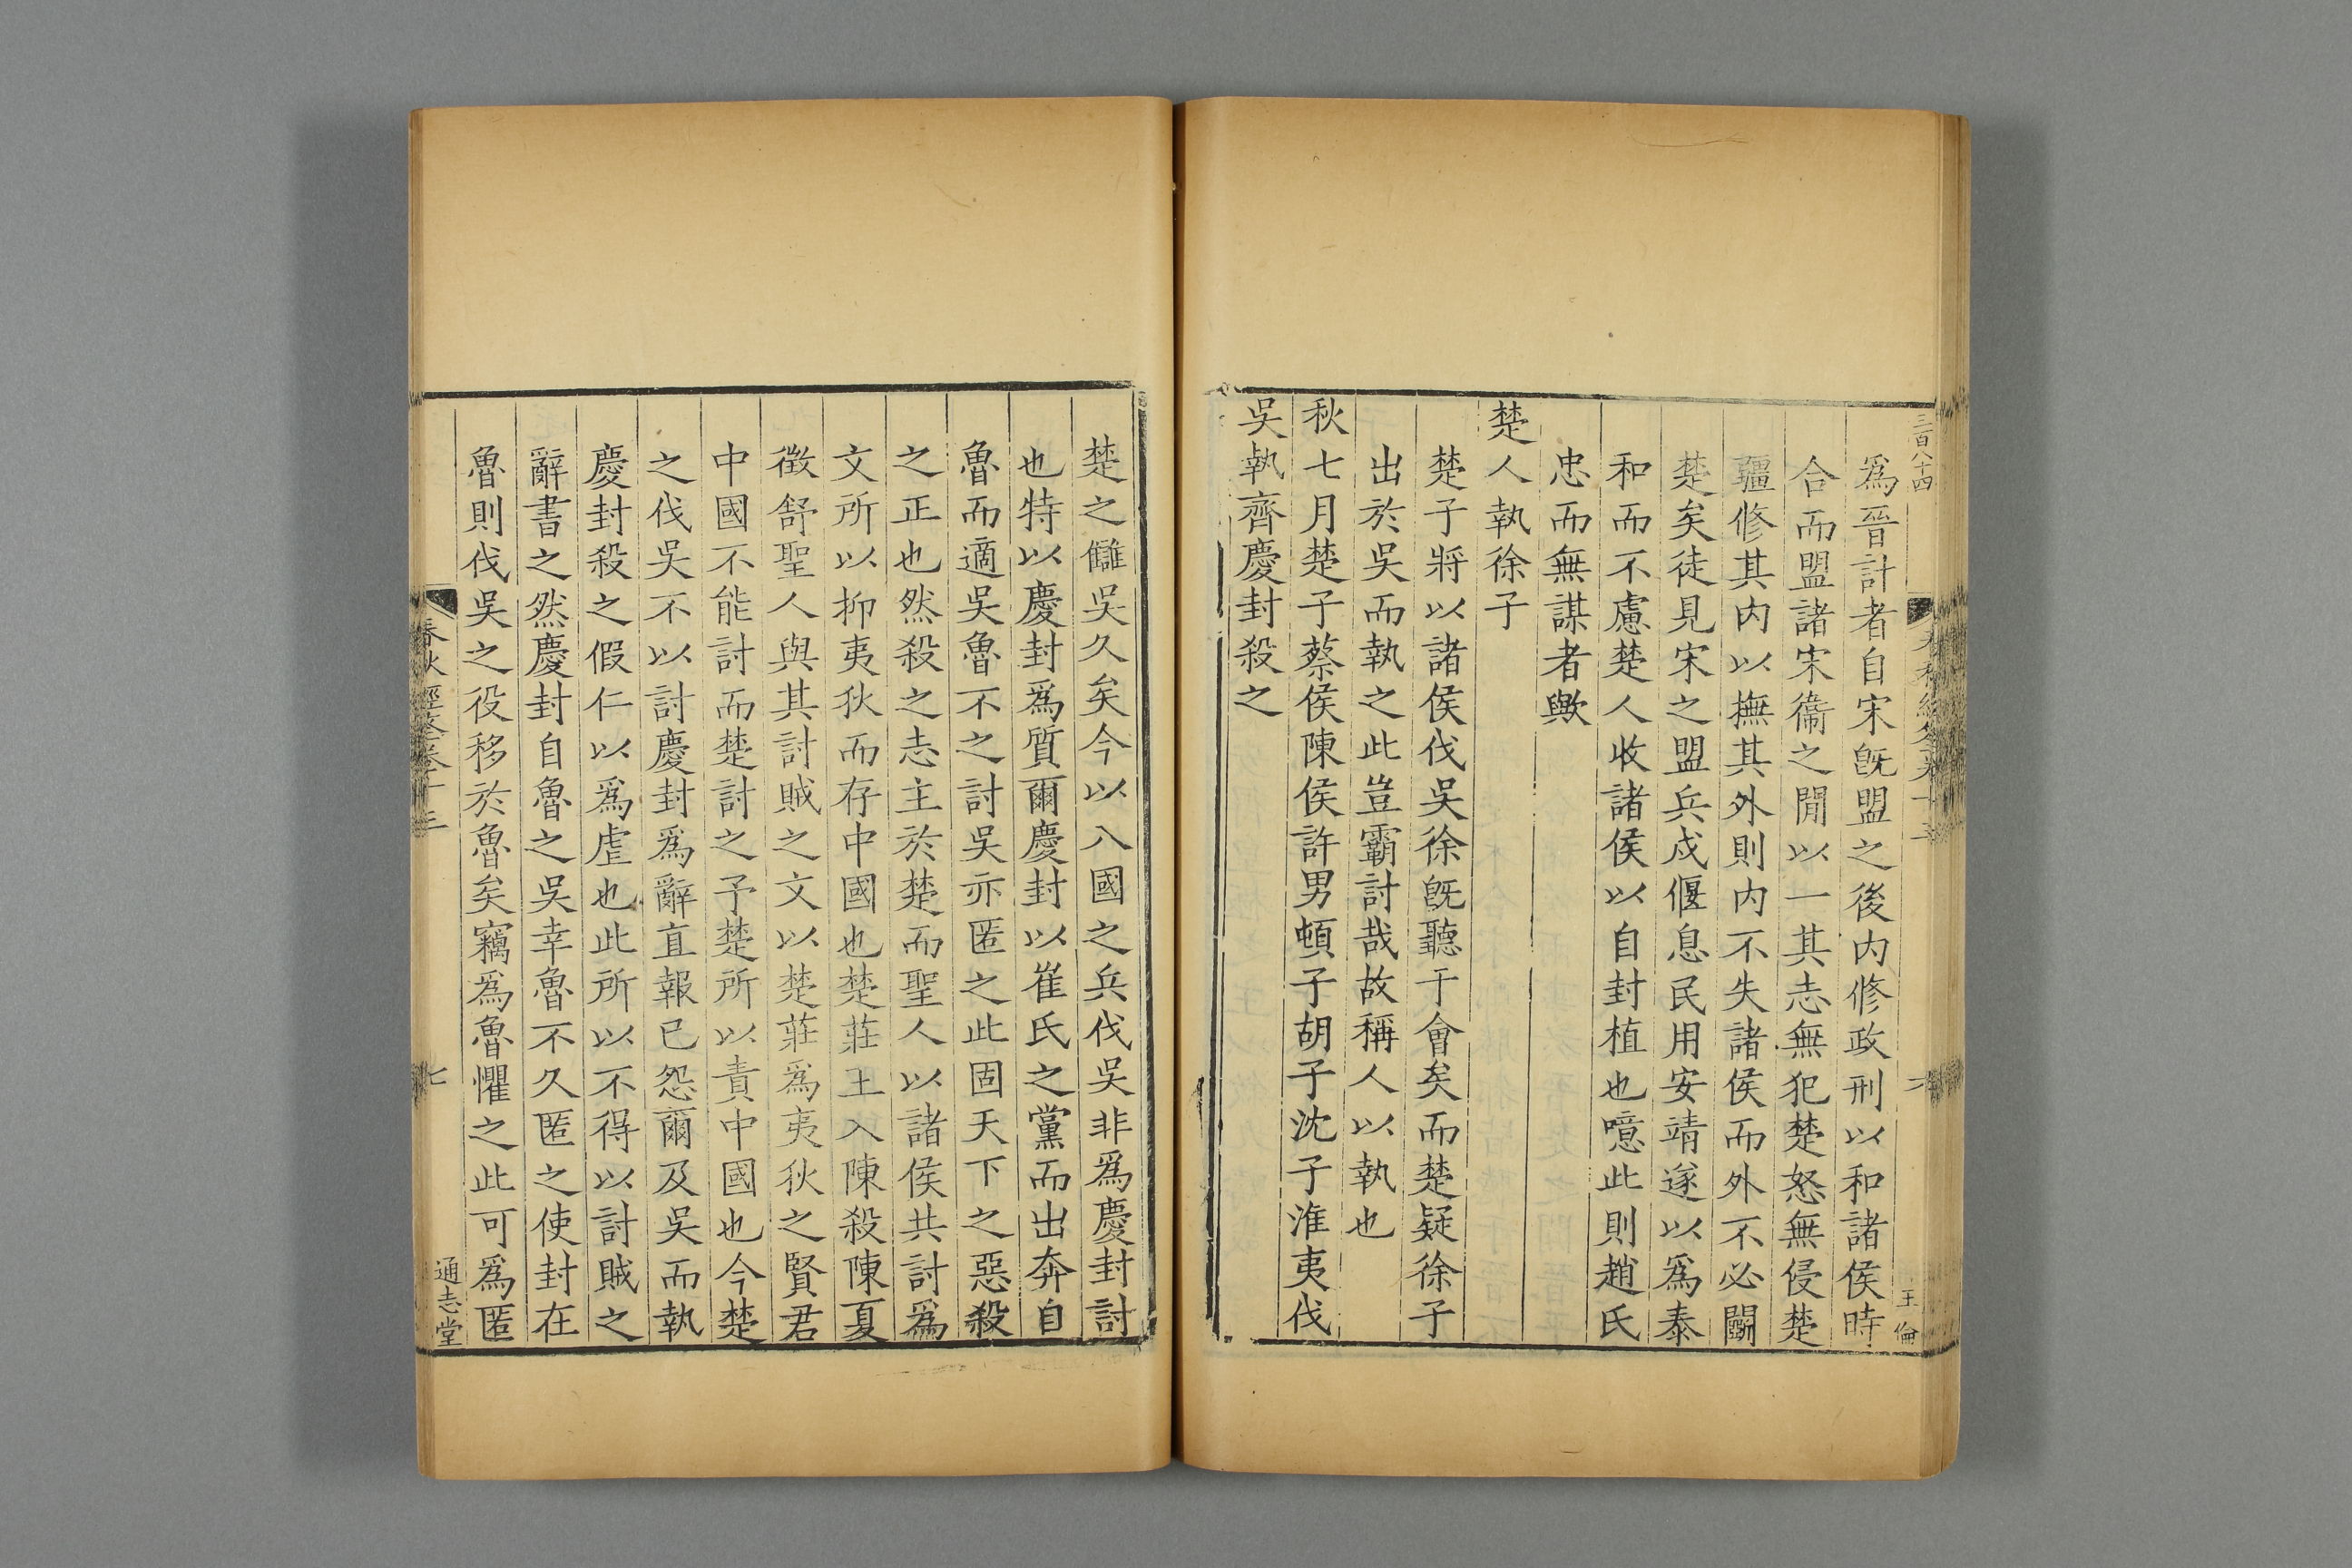 三百八十四
爲晉計者自宋旣盟之後内修政刑以和諸侯時
合而盟諸宋衞之間以一其志無犯楚怒無侵楚
疆修其内以撫其外則内不失諸侯而外不必鬭
楚矣徒見宋之盟兵戍偃息民用安靖遂以爲泰
和而不慮楚人收諸侯以自封植也噫此則趙氏
忠而無謀者歟
楚人執徐子
楚子將以諸侯伐吳徐旣聽于會矣而楚疑徐子
出於吳而執之此豈霸討哉故稱人以執也
秋七月楚子蔡侯陳侯許男頓子胡子沈子淮夷伐
吳執齊慶封殺之
王倫
楚之讎吳久矣今以八國之兵伐吳非爲慶封討
也特以慶封爲質爾慶封以崔氏之黨而出奔自
魯而適吳魯不之討吳亦匿之此固天下之惡殺
之正也然殺之志主於楚而聖人以諸侯共討爲
文所以抑夷狄而存中國也楚莊王入陳殺陳夏
徵舒聖人與其討賊之文以楚莊爲夷狄之賢君
中國不能討而楚討之予楚所以責中國也今楚
之伐吳不以討慶封爲辭直報已怨爾及吳而執
慶封殺之假仁以爲虐也此所以不得以討賊之
辭書之然慶封自魯之吳幸魯不久匿之使封在
魯則伐吳之役移於魯矣竊爲魯懼之此可爲匿
春秋經筌卷十三
七
通志堂